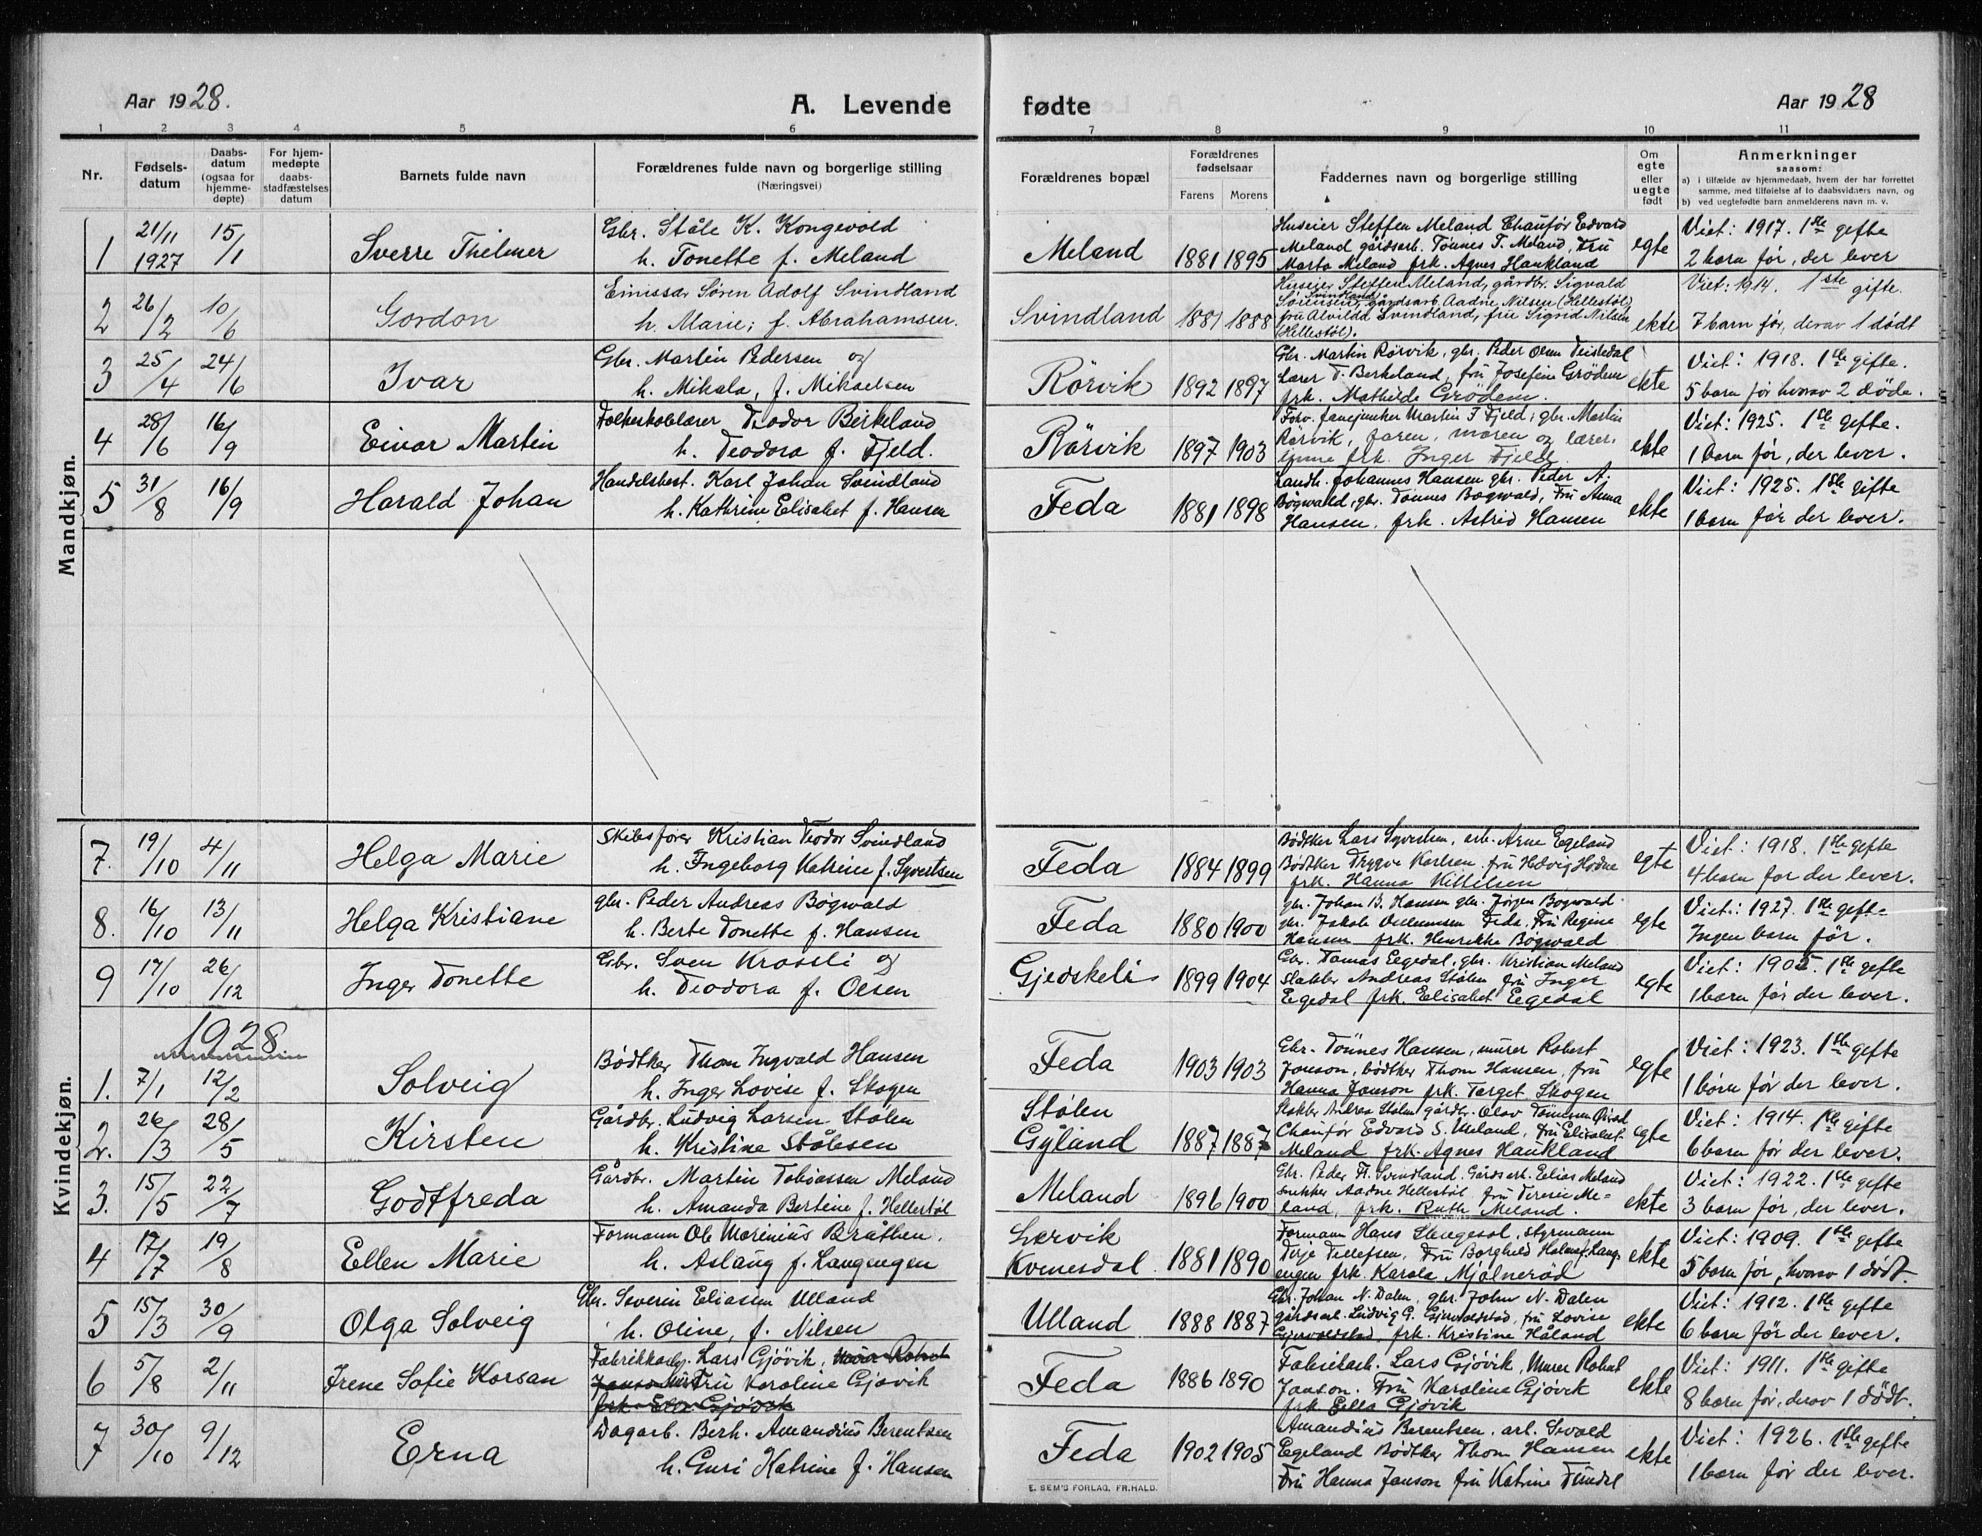 Aar 1928.
A. Levende fødte
Aar 1928
1 2 3 4 5 6 7 8 9 10 11
Nr.
Fødsels-
datum
Daabs-
datum
(ogsaa for
hjemme-
døpte)
For hjem-
medøpte
daabs-
stadfæstelses
datum
Barnets fulde navn
Forældrenes fulde navn og borgerlige stilling
(Næringsvei)
Forældrenes bopæl
Forældrenes
fødselsaar
Farens Morens
Faddernes navn og borgerlige stilling
Om
egte
eller
uegte
født
Anmerkninger
saasom:
a) i tilfælde av hjemmedaab, hvem der har forrettet
samme, med tilføielse af to daabsvidners navn, og
b) ved uegtefødte barn anmelderens navn m. v.
Mandkjøn.
1 21/11 1927 15/1 Sverre Thilmer
Gbr. Ståle K. Kongevold
h. Tonette f. Meland
Meland 1881 1895
Huseier Steffen Meland Chauför Edvard
Meland gårdsarb. Tönnes T. Meland, fru
Marta Meland frk. Agnes Haukland
egte
Viet: 1917. 1ste gifte
2 barn før, der lever
2 26/2 10/6 Gordon
Søren Adolf Svindland
h. Marie; f. Abrahamsen.
Svindland 1881 1888
Huseier Steffen Meland, gårdbr. Sigvald
Sørensen, Svindland, gårdsarb. Aadne Nilsen (Hellestøl)
fru Alvilda Svindland, fru Sigrid Nilsen
(Hellestøl).
ekte
Viet: 1914. 1ste gifte.
7 barn før, derav 1 dødt
3 25/4 24/6 Ivar
Gbr. Martin Pedersen og
h. Mikala, f. Mikaelsen
Rörvik 1892 1897
Gbr. Martin Rörvik, gbr. Peder Olsen Teistedal
Lærer T. Berkeland, fru Josefine Grødem
frk. Mathilde Grödem.
ekte
Viet: 1918. 1ste gifte.
5 barn før hvorav 2 døde.
4 28/6 16/9 Eivar Martin
Folkeskolelærer Teodor Birkeland
h. Teodora f. Fjeld.
Rörvik 1897 1903
Forv. fanejunker Martin T. Fjeld; gbr. Martin
Rörvik, faren, moren og lærer.
inne frk. Inger Fjeld.
ekte
Viet: 1925. 1ste gifte.
1 barn før, der lever.
5 31/8 16/9 Harald Johan
Handelsbest. Karl Johan Svindland
h. Kathrine Elisabet f. Hansen
Feda 1881 1898
Landh. Johannes Hansen gbr. Peder A.
Bøgwald, gbr. Tønnes Bøgwald, Fru Anna
Hansen, frk. Astrid Hansen
ekte
Viet: 1925. 1ste gifte
1 barn før der lever.
Kvindekjøn.
7. 19/10 4/11 Helga Marie
Skibsfører Kristian Teodor Svindland
h. Ingeborg Katrine f. Syvertsen
Feda 1884 1899
Bødtker Lars Syvertsen, arb. Arne Egeland
Bødtker Trygve Karlsen, fru Hedvig Hodne
frk. Hanna Kittelsen
egte
Viet: 1918. 1ste gifte
4 barn før der lever.
8. 16/10 13/11 Helga Kristiane
gbr. Peder Andreas Bøgwald
h. Berte Tonette f. Hansen
Feda 1880 1900
gbr. Johan B. Hansen gbr. Jörgen Bogwald
gbr. Jakob Feda, Fru Regine
Hansen frk. Henrikke Bøgwald
egte
Viet: 1927. 1ste gifte
Ingen barn før.
9 17/10 26/12 Inger Tonette
Gbr. Sven Krossli og
h. Teodora f. Olsen
Gjedskeli 1899 1904
Gbr. Tomas Egedal, gbr. Kristian Meland
Andreas Stølen fru Inger
Egedal frk. Elisabet Egedal
egte
Viet: 1905. 1ste gifte
1 barn før der lever.
1928
1. 7/1 12/2 Solveig
Bødtker Thom Ingvald Hansen
h. Inger Lovise f. Skogen
Feda 1903 1903
Gbr. Tönnes Hansen, murer Robert
Janson, bødtker Thom Hansen, fru
Hanna Janson frk. Target Skogen
egte
Viet: 1923. 1ste gifte
1 børn før der lever.
2. 26/3 28/5 Kirsten
Gårdbr. Ludvig Larsen Stølen
h. Kristine Stølesen
Stølen
Gyland 1887 1887
Andrea Stølen gårdbr. Olav Tönnesen
Chauför Edvard S. Meland, Fru Elisabet
Meland frk. Agnes Haukland
egte
Viet: 1914. 1ste gifte
6 barn før der lever.
3. 15/5 22/7 Godtfreda
Gårdbr. Martin Tobiassen Meland
h. Amanda Bertine f. Hellestøl
Meland 1896 1900
Gbr. Peder Fl. Svindland. Gårdsarb. Elias Meland
snekker Aadne Hellestøl, fru Teresie Me-
land, frk. Ruth Meland.
ekte
Viet: 1922. 1ste gifte
3 barn før, der lever.
4 17/7 19/8 Ellen Marie
Formann Ole Marinius Bråthen.
h. Aslaug f. Langengen
Lervik
Kvinesdal. 1881 1890
Formann Hans styrmann
Terje Tellefsen, Fru Borghild Holmsf. Lang-
engen frk. Karola Mjølnerød
ekte
Viet: 1909. 1ste gifte
5 barn før, hvorav 1 dødt.
5 15/3 30/9 Olga Solveig
Gbr. Severin Eliasen Ulland
h. Oline, f. Nilsen
Ulland 1888 1887
Gbr. Johan N. Dalen, gbr. John N. Dalen
gårdsarb. Ludvig G. Gjervoldstad, fru Lovise
Gjervoldstad, frk. Kristine Håland
ekte
Viet: 1912. 1ste gifte
6 barn før der lever.
6 5/8 2/11 Irene Sofie Korsan
Fabrikkarb. Lars Gjövik, Murer Robert
Janson Fru Karoline Gjövik
frk. Ella Gjövik
Feda 1886 1890
Fabrikarb. Lars Gjøvik, Murer Robert
Janson. Fru Karoline Gjövik
frk Ella Gjövik
ekte
Viet: 1911. 1ste gifte
8 barn før, derav 1 dødt.
7 30/10 9/12 Erna
Dagarb. Berh. Amandius Berentsen
h. Guri Katrine f. Hansen
Feda 1902 1905
Amandius Berentsen, arb. Sevald
Egeland Bødtker Thom Hansen
Fru Hanna Janson fru Katrine Tindel
ekte
Viet: 1926. 1ste gifte
1 barn før der lever.
E. SEM'S FORLAG, FR.HALD.